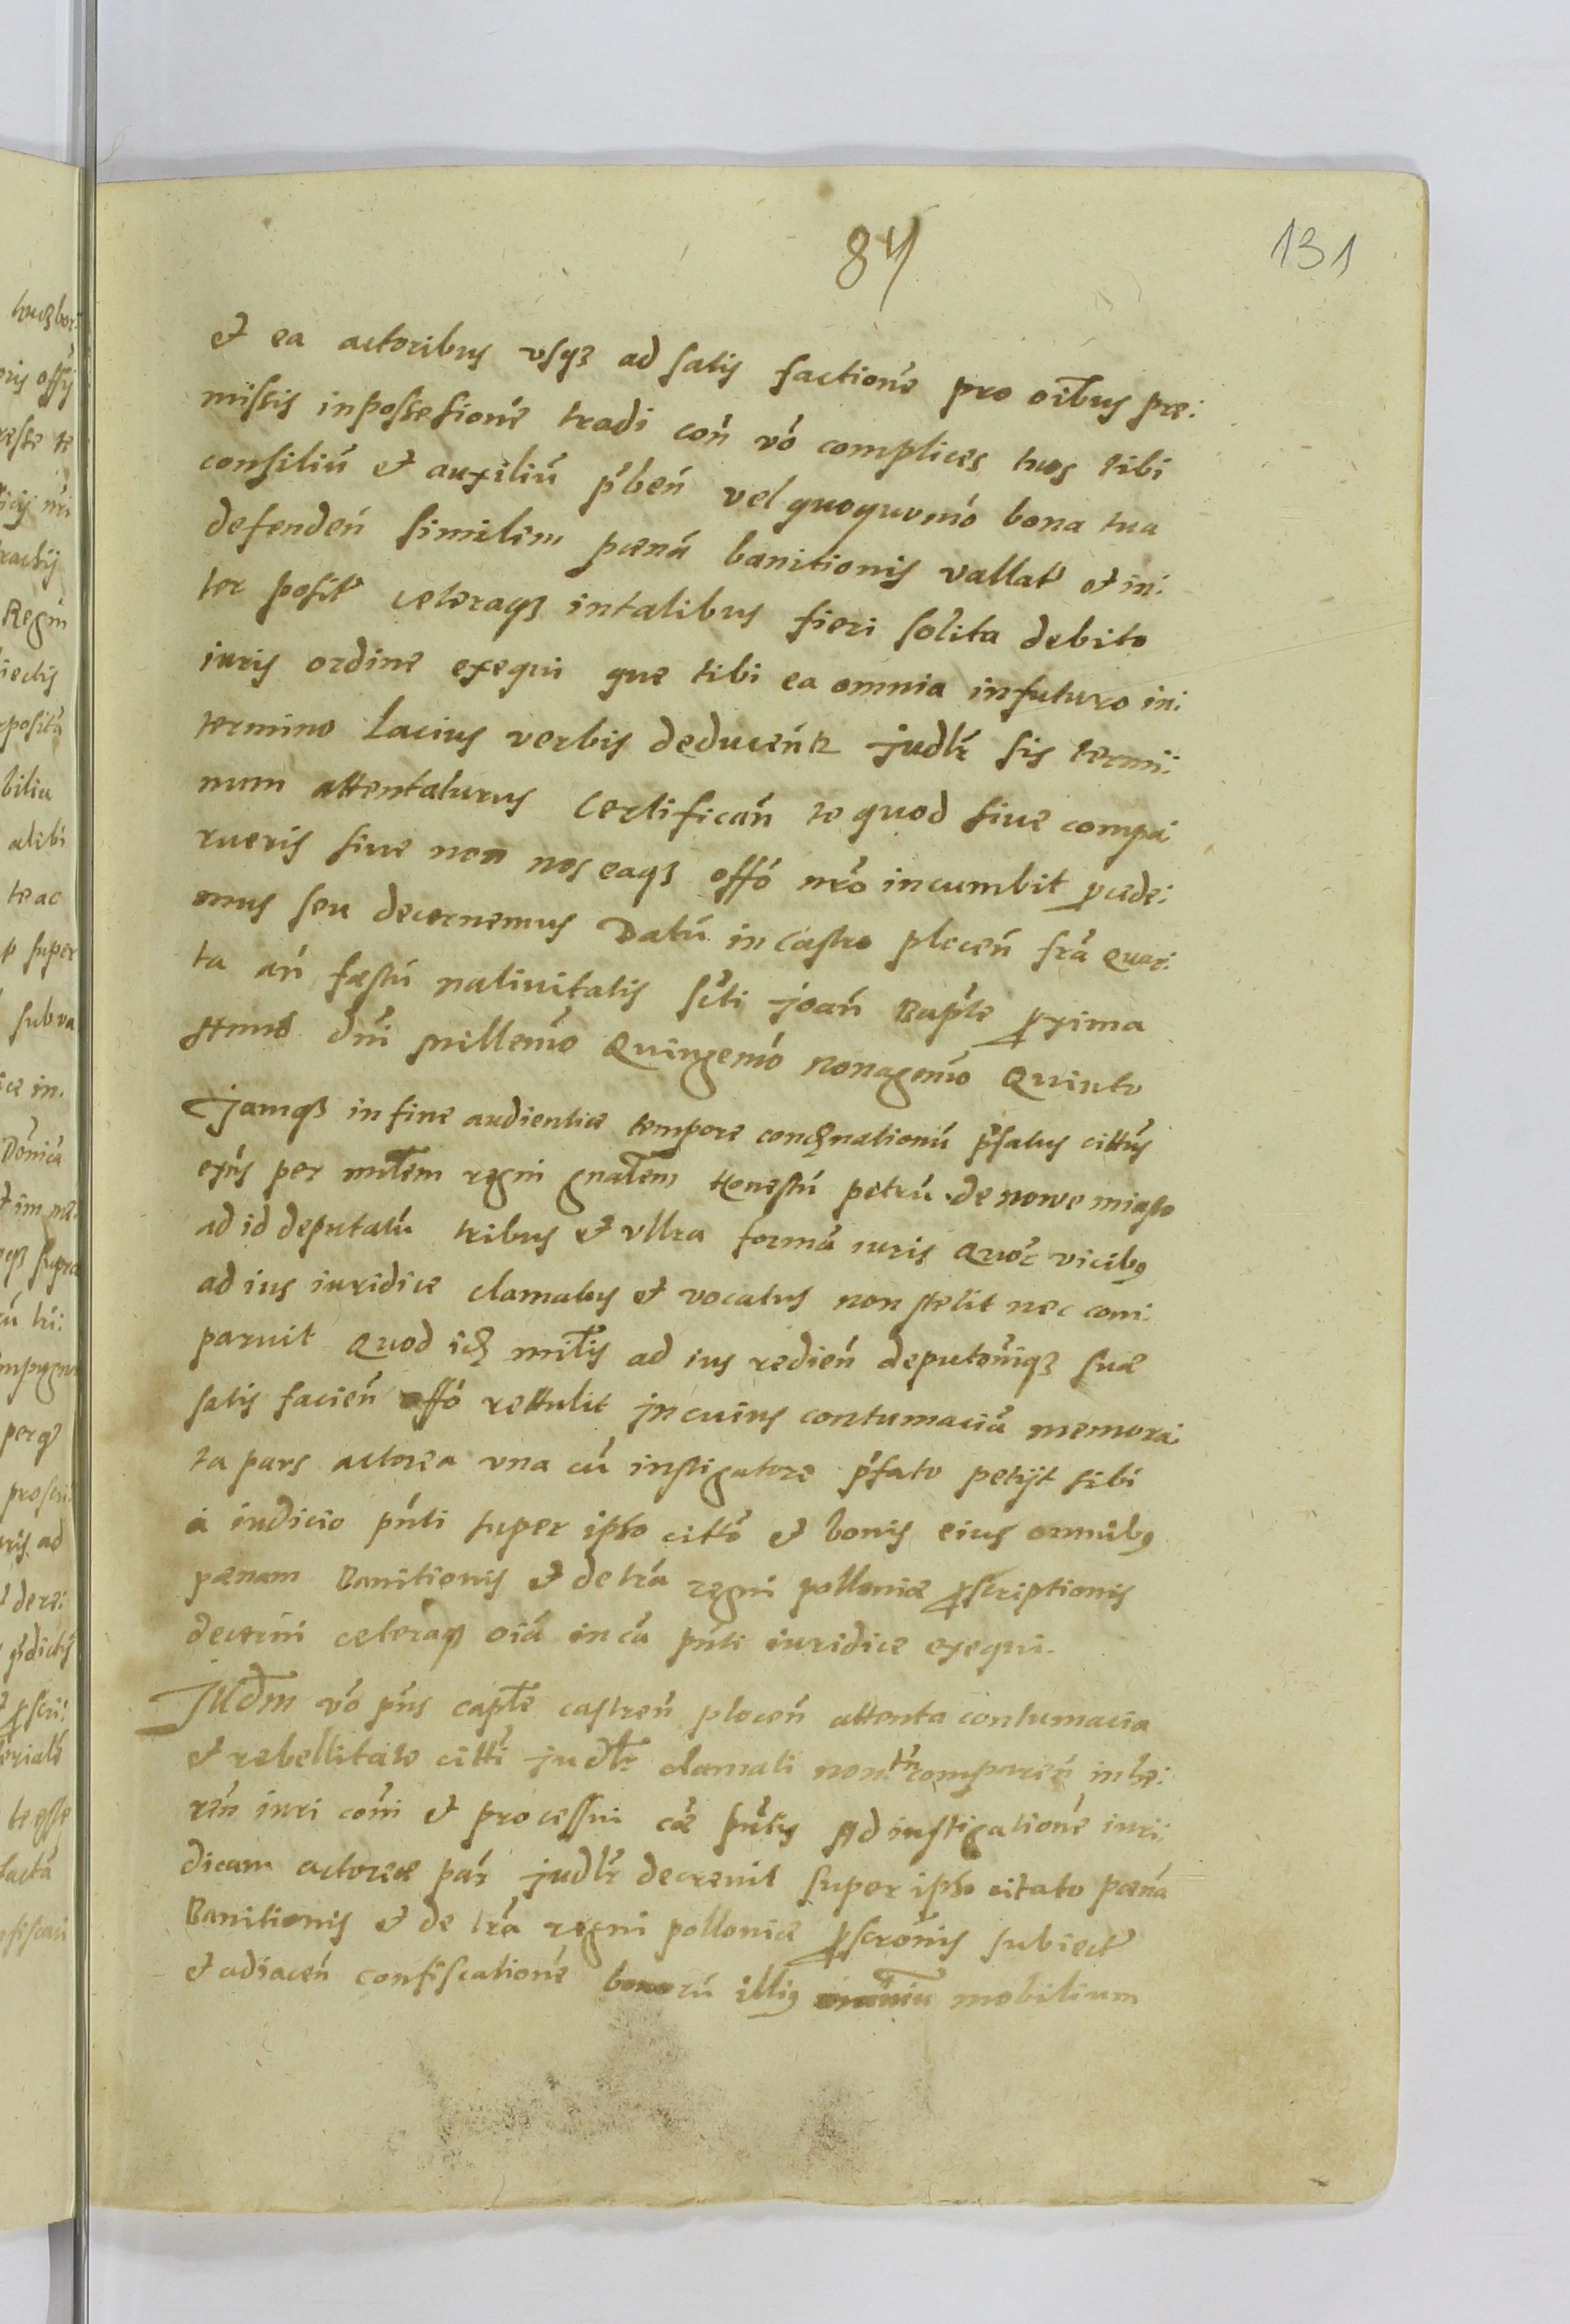 84
131
et ea actoribus vsqꝫ ad satis factionē pro oībus præ:
missis inpossesionē tradi coń vó complices tuos tibi
consiliū et auxiliū p̄beń vel quoquomó bona tua
defendeń similem pœná banitionis vallat͛ et in:
ter posit͛ ceteraqꝫ intalibus fieri solita debito
iuris ordine exequi que tibi ea omnia infuturo in:
termino Lacius verbis deducentꝛ judlr sis termi:
num attentaturus Certificań te quod siue compa
rueris siue non nos eaqꝫ offó nr̄o incumbit ꝓcede:
mus seu decernemus Datū in Castro ploceń fr̄a Quar:
ta añ fæstū natiuitatis sc̄ti joań Bap̄te ꝓxima
Anno dn̄i millemō Quingemó nonagemō Quinto
Jamqꝫ in fine audientiæ tempore condēnationū p̄fatus cittūs
exn̄s per mltem regni gnalem Honestū petrū de nowe miasto
ad id deputatū tribus et vltra formā iuris Quor vicibꝰ
ad ius iuridice clamatus et vocatus non stetit nec com:
paruit Quod idem miltis ad ius redień deputonīqꝫ suæ
satis facień offó rettulit jn cuius contumaciā memora:
ta pars actorea vna cū instigatore p̄fato petijt sibi
a iudicio pn̄ti super ipso cittō et bonis eius omnibꝰ
pœnam Banitionis et de trā regni polloniæ ꝓscriptionis
decerni ceteraqꝫ oīa in cā pn̄ti iuridice exequi.
JUdm vó pn̄s capltē castreń ploceń attenta contumacia
et rebellitate citti judlr clamati non tn̄ compareń inhæ:
reń iuri comī et processui cæ pn̄tis Ad instigationē iuri:
dicam actoreæ pár judlr decreuit super ipso citato pœná
Banitionis et de trā regni polloniæ ꝓscrōnis subiect͛
et adiaceń confiscationē bonorū illiꝰ mobilium